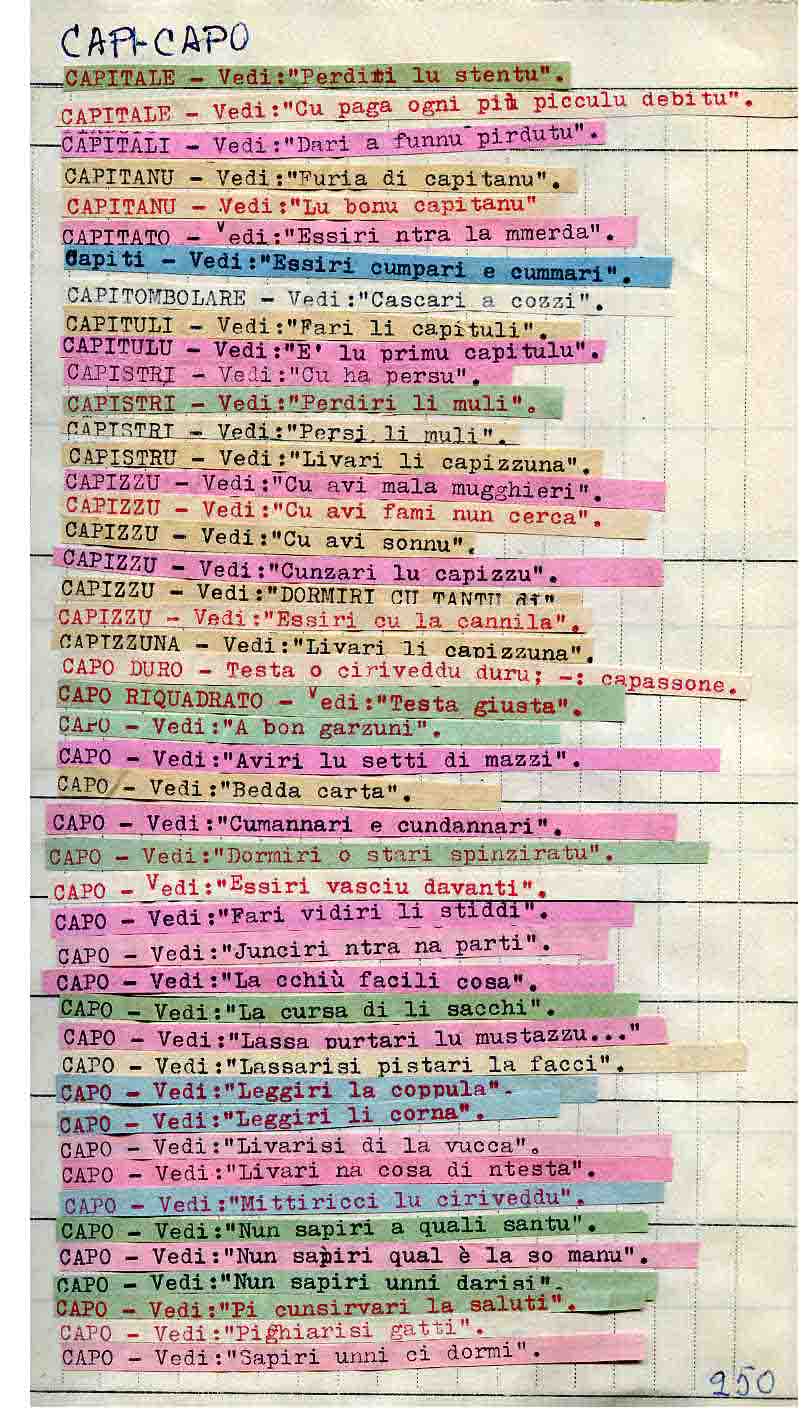 CAPI-CAPO
CAPITALE - Vedi:"Perditi lu stentu".
CAPITALE - Vedi:"Cu paga ogni più picculu debitu".
CAPITALI - Vedi:"Dari a funnu pirdutu".
CAPITANU - Vedi:"Furia di capitanu".
CAPITANU - Vedi:"Lu bonu capitanu"
CAPITATO - Vedi:"Essiri ntra la mmerda".
Capiti - Vedi:"Essiri cumpari e cummari".
CAPITOMBOLARE - Vedi:"Cascari a cozzi".
CAPITULI - Vedi:"Fari li capituli".
CAPITULU - Vedi:"E' lu primu capitulu".
CAPISTRI - Vedi:"Cu ha persu".
CAPISTRI - Vedi:"Perdiri li muli".
CAPISTRI - Vedi:"Persi li muli".
CAPISTRU - Vedi:"Livari li capizzuna".
CAPIZZU - Vedi:"Cu avi mala mugghieri".
CAPIZZU - Vedi:"Cu avi fami nun cerca".
CAPIZZU - Vedi:"Cu avi sonnu".
CAPIZZU - Vedi:"Cunzari lu capizzu".
CAPIZZU - Vedi:"DORMIRI CU TANTU di"
CAPIZZU - Vedi:"Essiri cu la cannila".
CAPIZZUNA - Vedi:"Livari li capizzuna".
CAPO DURO - Testa o ciriveddu duru; -: capassone.
CAPO RIQUADRATO - Vedi:"Testa giusta".
CAPO - Vedi:"A bon garzuni".
CAPO - Vedi:"Aviri lu setti di mazzi".
CAPO - Vedi:"Bedda carta".
CAPO - Vedi:"Cumannari e cundannari".
CAPO - Vedi:"Dormiri o stari spinziratu".
CAPO - Vedi:"Essiri vasciu davanti".
CAPO - Vedi:"Fari vidiri li stiddi".
CAPO - Vedi:"Junciri ntra na parti".
CAPO - Vedi:"La cchiù facili cosa".
CAPO - Vedi:"La cursa di li sacchi".
CAPO - Vedi:"Lassa purtari lu mustazzu..."
CAPO - Vedi:"Lassarisi pistari la facci".
CAPO - Vedi:"Leggiri la coppula".
CAPO - Vedi:"Leggiri li corna".
CAPO - Vedi:"Livarisi di la vucca".
CAPO - Vedi:"Livari na cosa di ntesta".
CAPO - Vedi:"Mittiricci lu ciriveddu".
CAPO - Vedi:"Nun sapiri a quali santu".
CAPO - Vedi:"Nun sapiri qual è la so manu".
CAPO - Vedi:"Nun sapiri unni darisi".
CAPO - Vedi:"Pi cunsirvari la saluti".
CAPO - Vedi:"Pighiarisi gatti".
CAPO - Vedi:"Sapiri unni ci dormi".
250